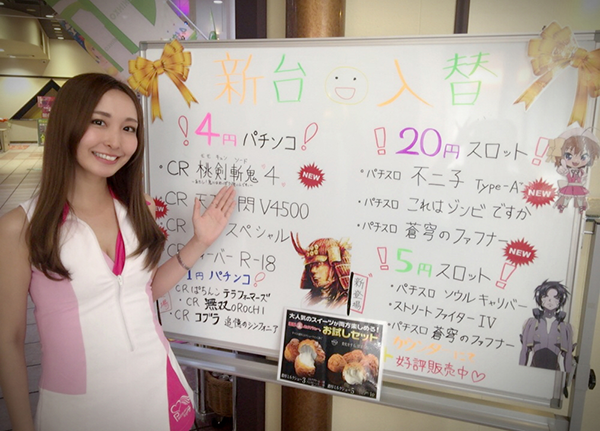 新台入替
4円 パチンコ!
・CR 桃剣斬鬼 4 NEW
CR 天 閃 V4500
CR スペシャル
CR ーバー R-18
1円 パチンコ!
CR ぱちんこ テラフォーマーズ
・CR 無双OROCHI
CR コブラ 追憶のシンフォニア
!20円 スロット!
・パチスロ 不二子 Type-A NEW
・パチスロ これはゾンビですか
・パチスロ 蒼穹のファフナー NEW
!5円 スロット!
・パチスロ ソウルキャリバー
・ストリートファイターIV
・パチスロ 蒼穹のファフナー
新登場
大人気のスイーツが両方楽しめる!
お試しセット
好評販売中♡